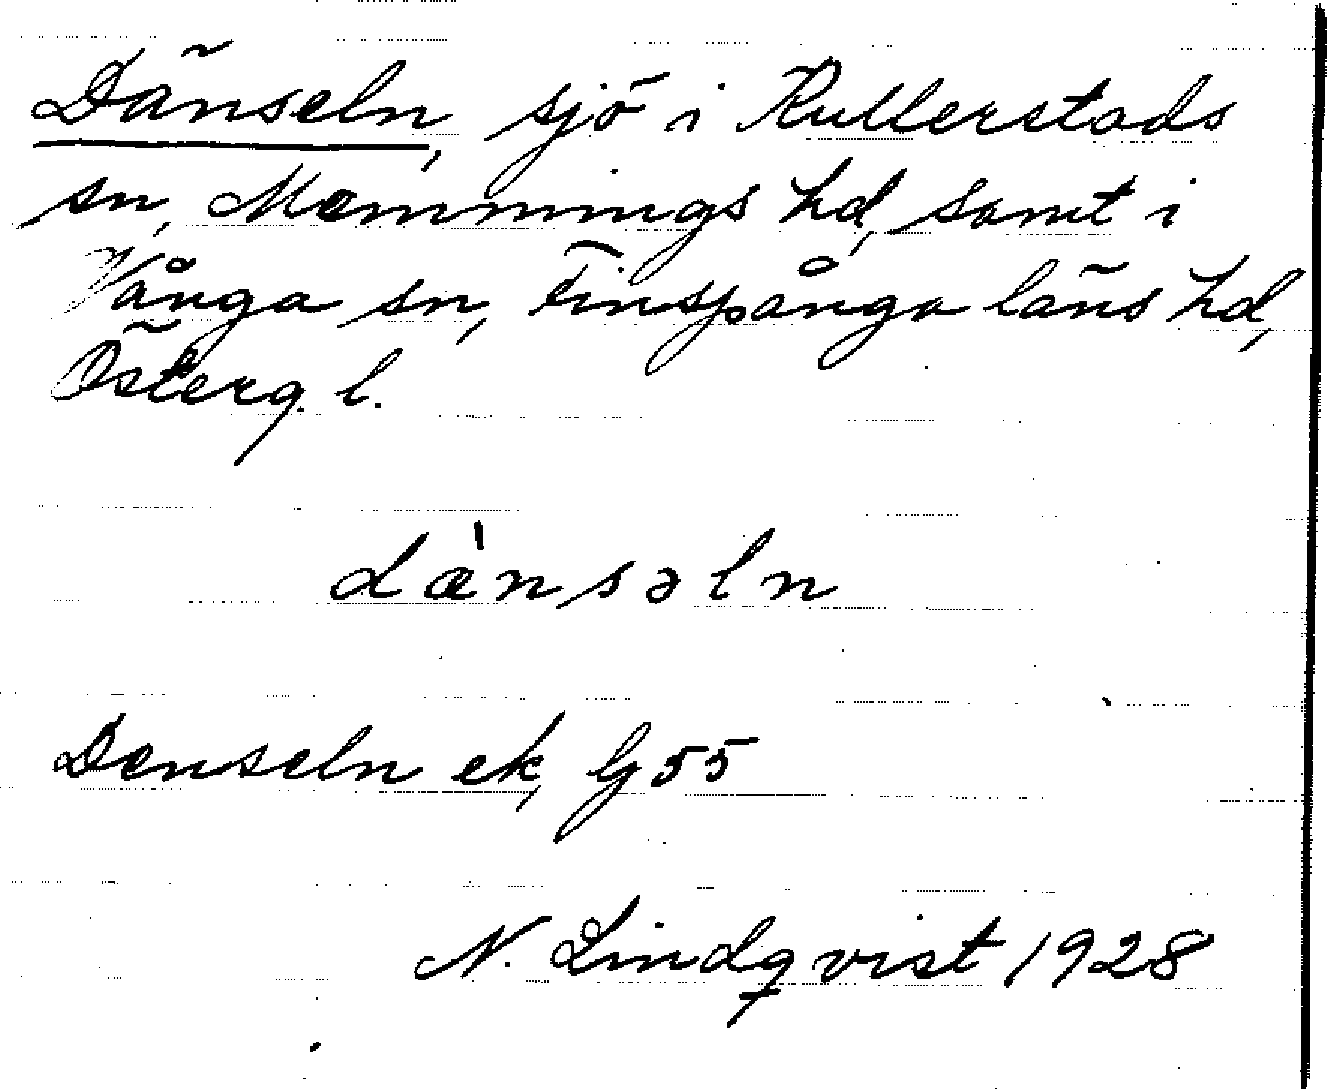 Dänseln, sjö i Kullerstads
sn, Memmings hd, samt i
Vånga sn, Finspånga läns hd,
Österg. l.
dæ̀nsəln
Denseln ek, G 55
N. Lindqvist 1928